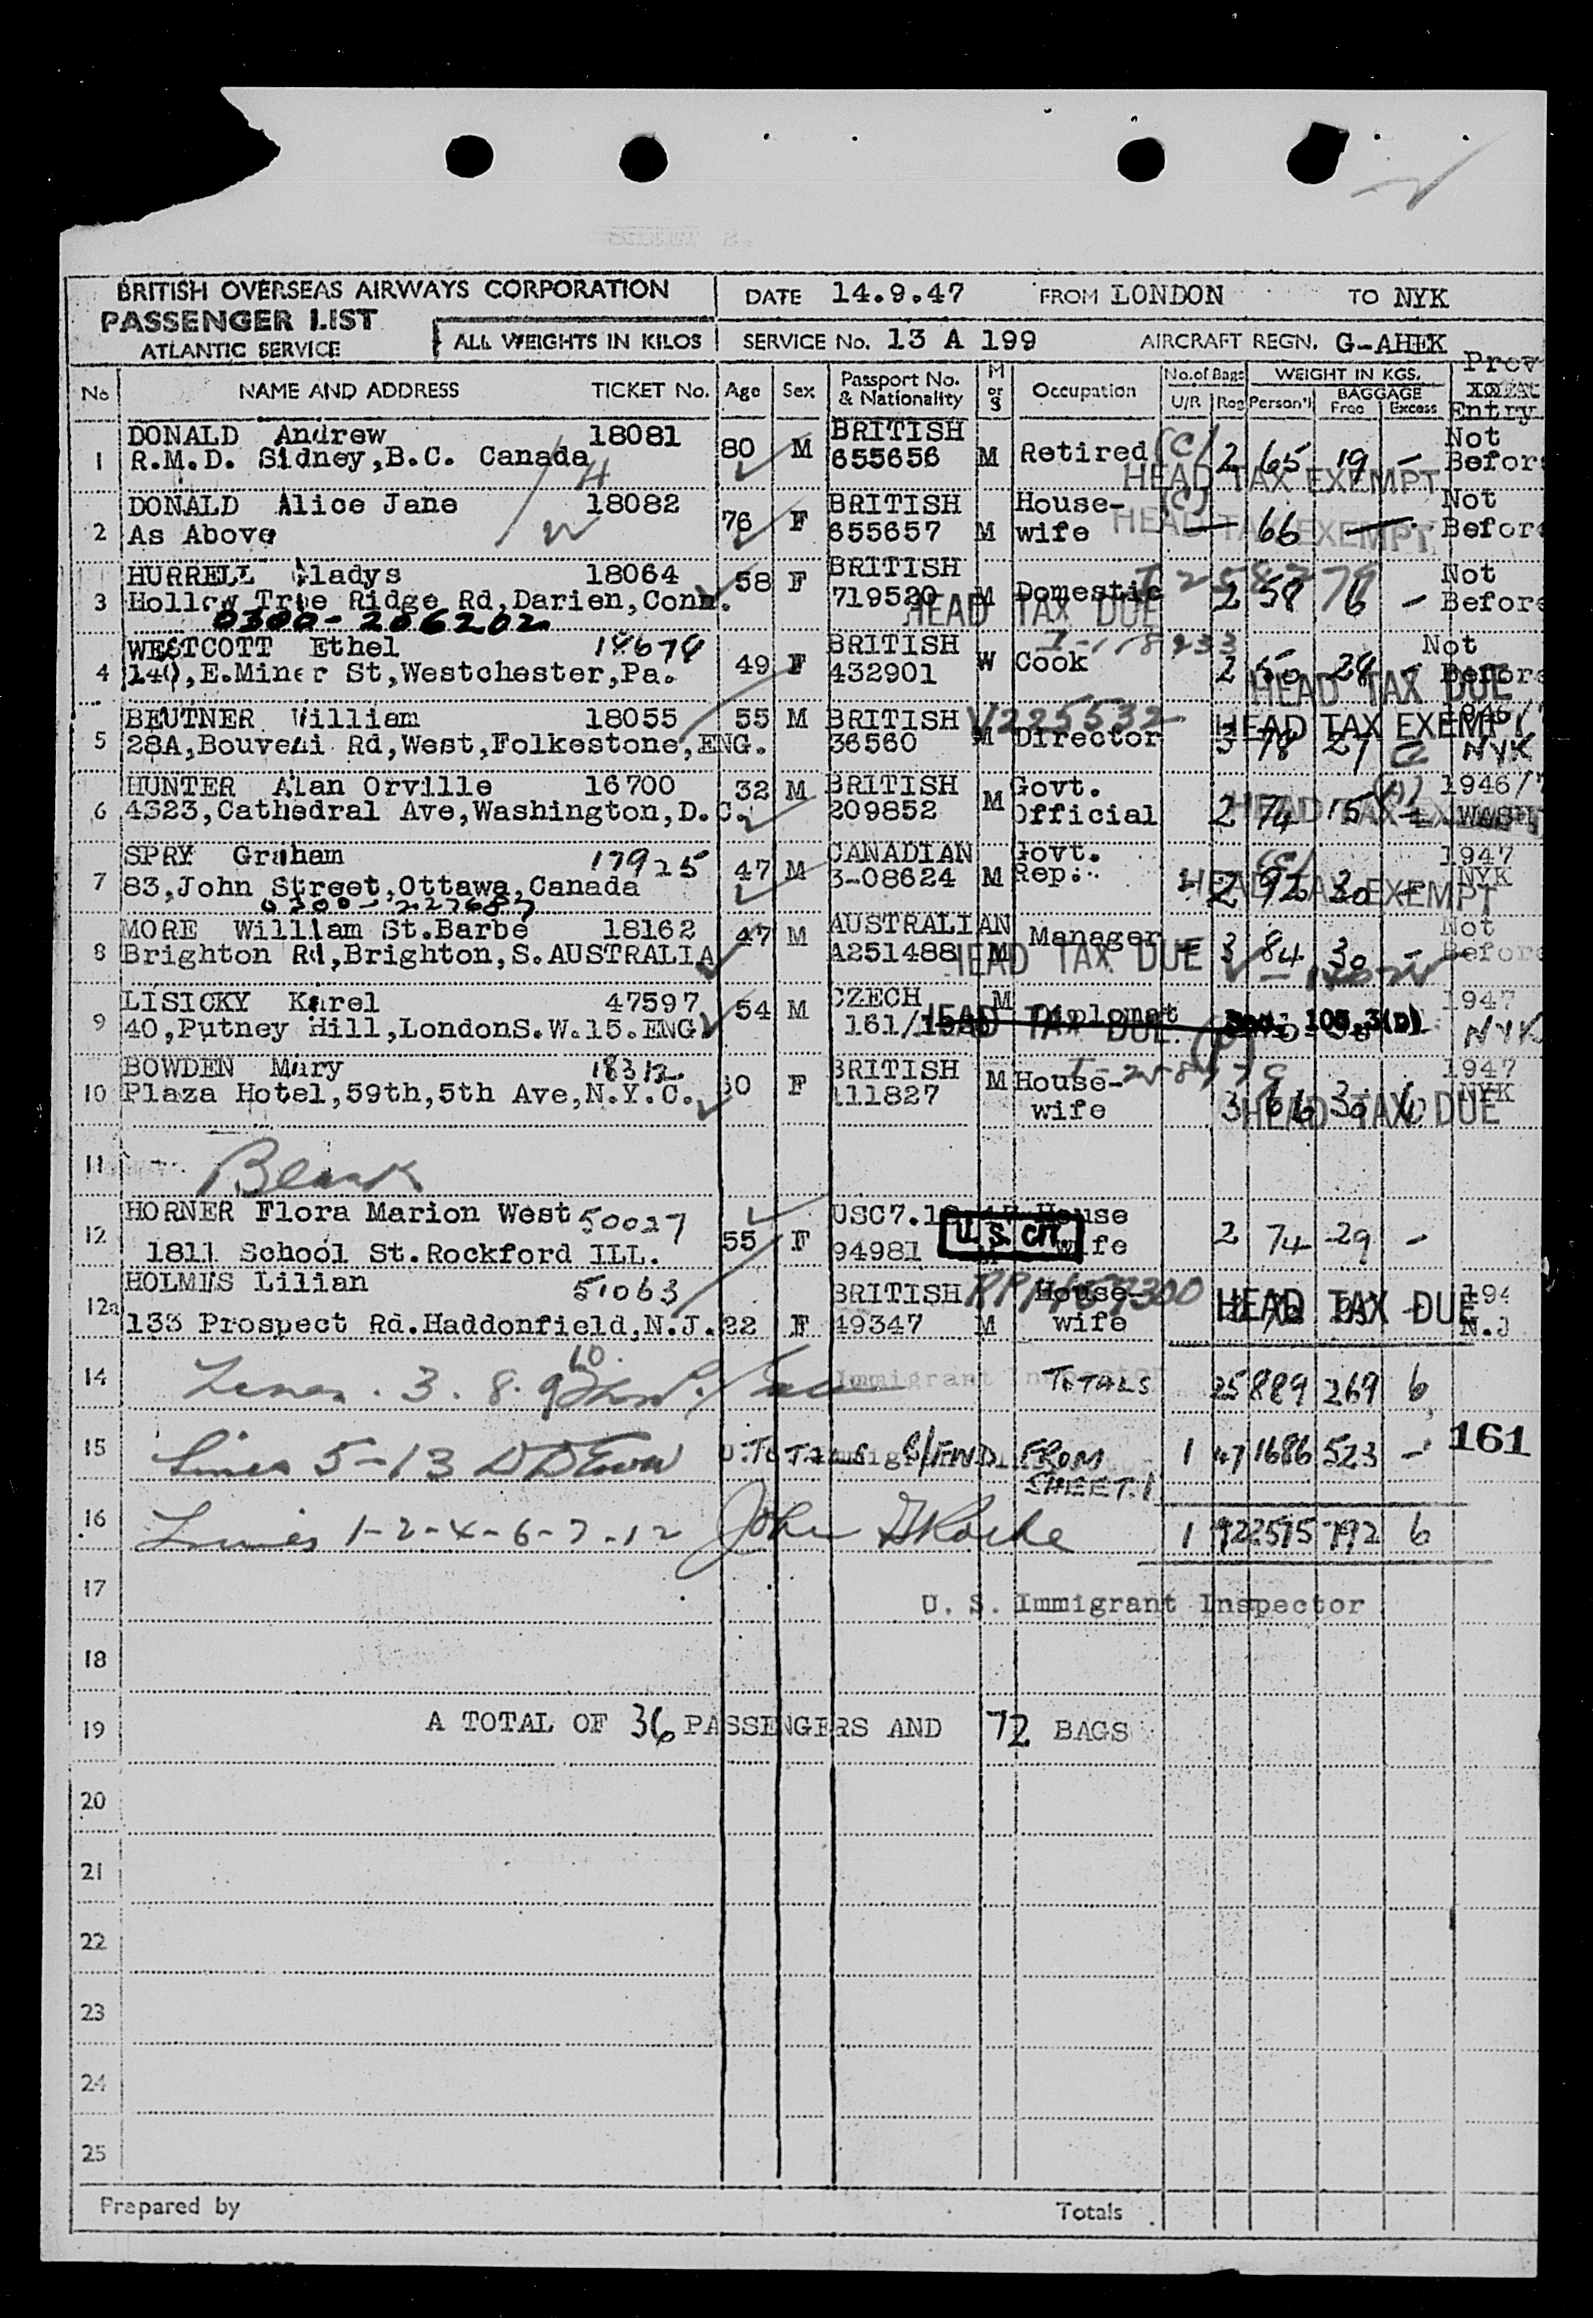 BRITISH OVERSEAS AIRWAYS CORPORATION
PASSENGER LIST
ATLANTIC SERVICE
ALL WEIGHTS IN KILOS
DATE 14.9.47 FROM LONDON TO NYK
SERVICE No. 13 A 199 AIRCRAFT REGN. G-AHEK
No NAME AND ADDRESS TICKET No. Age Sex Passport No. & Nationality M or S Occupation No. of Bags U/R Reg WEIGHT IN KGS. Person'l BAGGAGE Free Excess Prev Entry
DONALD Andrew 18081 BRITISH Not
1 R.M.D. Sidney,B.C. Canada 80 M 655656 M Retired (C) 2 65 19 - Before
HEAD TAX EXEMPT
DONALD Alice Jane 18082 BRITISH House- (C) Not
2 As Above 76 F 655657 M wife 66 Before
HEAD TAX EXEMPT
HURRELL Gladys 18064 58 F BRITISH Not
3 Hollow Tree Ridge Rd,Darien,Conn. 719520 M Domestic 2 58 6 - Before
HEAD TAX DUE
0300-206202
WESTCOTT Ethel BRITISH Not
4 140,E.Miner St,Westchester,Pa. 49 F 432901 W Cook 2 50 28 - Before
HEAD TAX DUE
BEUTNER William 18055 55 M BRITISH V225532
5 28A,Bouveri Rd,West,Folkestone,ENG. 36560 M Director 3 78 27 NYK
HEAD TAX EXEMPT
HUNTER Alan Orville 16700 32 M BRITISH Govt. 1946/7
6 4323,Cathedral Ave,Washington,D.C. 209852 M Official 2 74 15 WASH
HEAD TAX EXEMPT
SPRY Graham 17925 47 M CANADIAN Govt. 1947
7 83,John Street,Ottawa,Canada 3-08624 M Rep. 2 92 30 - NYK
HEAD TAX EXEMPT
0300-227687
MORE William St.Barbe 18162 47 M AUSTRALIAN Manager Not
8 Brighton Rd,Brighton,S.AUSTRALIA A251488 M 3 84 30 - Before
HEAD TAX DUE
LISICKY Karel 47597 54 M CZECH M Diplomat 1947
9 40,Putney Hill,LondonS.W.15.ENG 161/ NYK
HEAD TAX DUE
BOWDEN Mary 18312 BRITISH M House- 1947
10 Plaza Hotel,59th,5th Ave,N.Y.C. F 111827 wife 3 66 30 6 NYK
HEAD TAX DUE
11 Blank
HORNER Flora Marion West 50027 House
12 1811 School St.Rockford ILL. 55 F 94981 wife 2 74 29 -
U.S. CIT
HOLMES Lilian 51063 BRITISH House-
12a 133 Prospect Rd.Haddonfield,N.J. 22 F 49347 M wife N.J
HEAD TAX DUE
14 Lines. 3. 8. 9 10. Immigrant Inspector TOTALS 25 889 269 6
15 Lines 5-13 TOTALS B/FWD FROM SHEET.1 1 47 1686 523 - 161
16 Lines 1-2-4-6-7-12 1 72 2575 792 6
17 U. S. Immigrant Inspector
18
19 A TOTAL OF 36 PASSENGERS AND 72 BAGS
20
21
22
23
24
25
Prepared by Totals